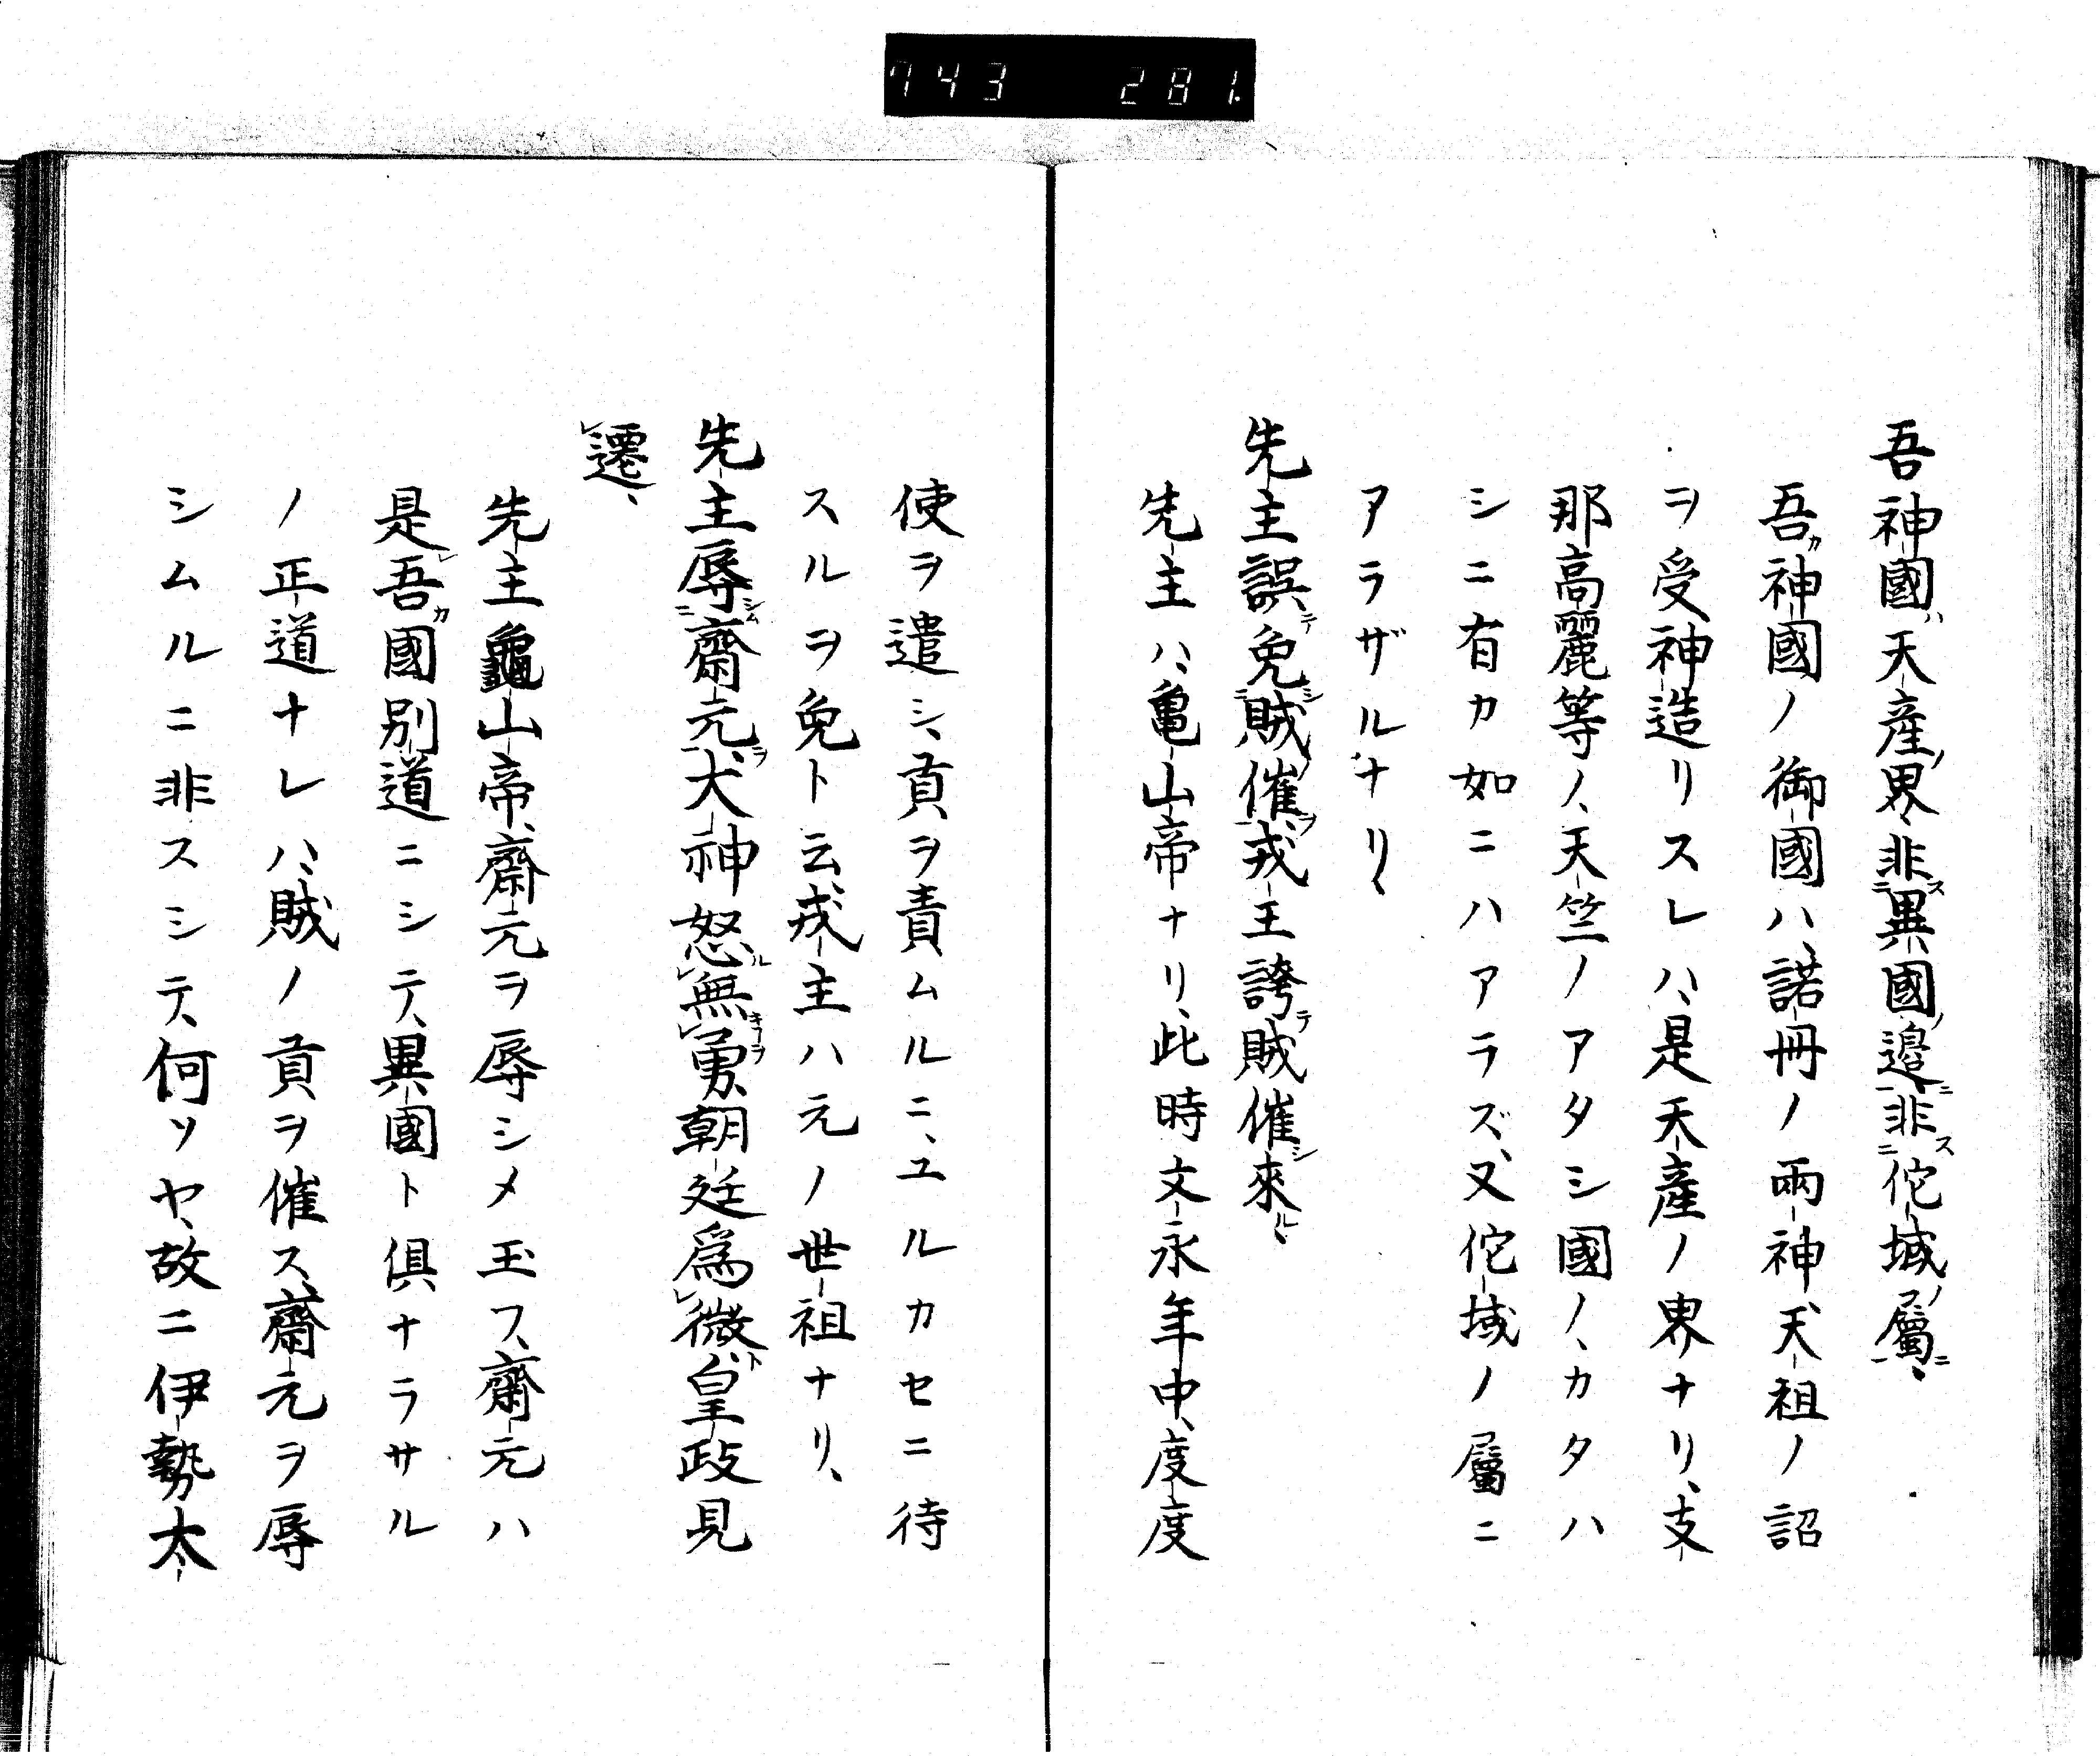 743 281.
吾神國ハ天産ノ界、非ス二異國ノ邉ニ一、非ス二佗域ノ屬ニ一、
吾カ神國ノ御國ハ、諾冊ノ兩神、天祖ノ詔
ヲ受神造リスレハ、是天産ノ界ナリ、支
那高麗等ノ、天竺ノアタシ國ノ、カタハ
シニ有カ如ニハアラズ、又佗域ノ屬ニ
アラザルナリ、
先主誤テ免シ二賊ノ催ヲ一、戎王誇テ賊催シ來ル、
先主ハ、亀山帝ナリ、此時文永年中、度度
使ヲ遣シ、貢ヲ責ムルニ、ユルカセニ待
スルヲ免ト云、戎主ハ元ノ世祖ナリ、
先主辱シム二齋元ヲ一、犬神怒ル レ無キヿヲ レ勇、朝廷爲 レ微ト、皇政見
レ遷、
先主龜山帝、齋元ヲ辱シメ玉フ、齋元ハ
是レ吾カ國別道ニシテ、異國ト俱ナラサル
ノ正道ナレハ、賊ノ貢ヲ催ス、齋元ヲ辱
シムルニ非スシテ、何ソヤ、故ニ伊勢太